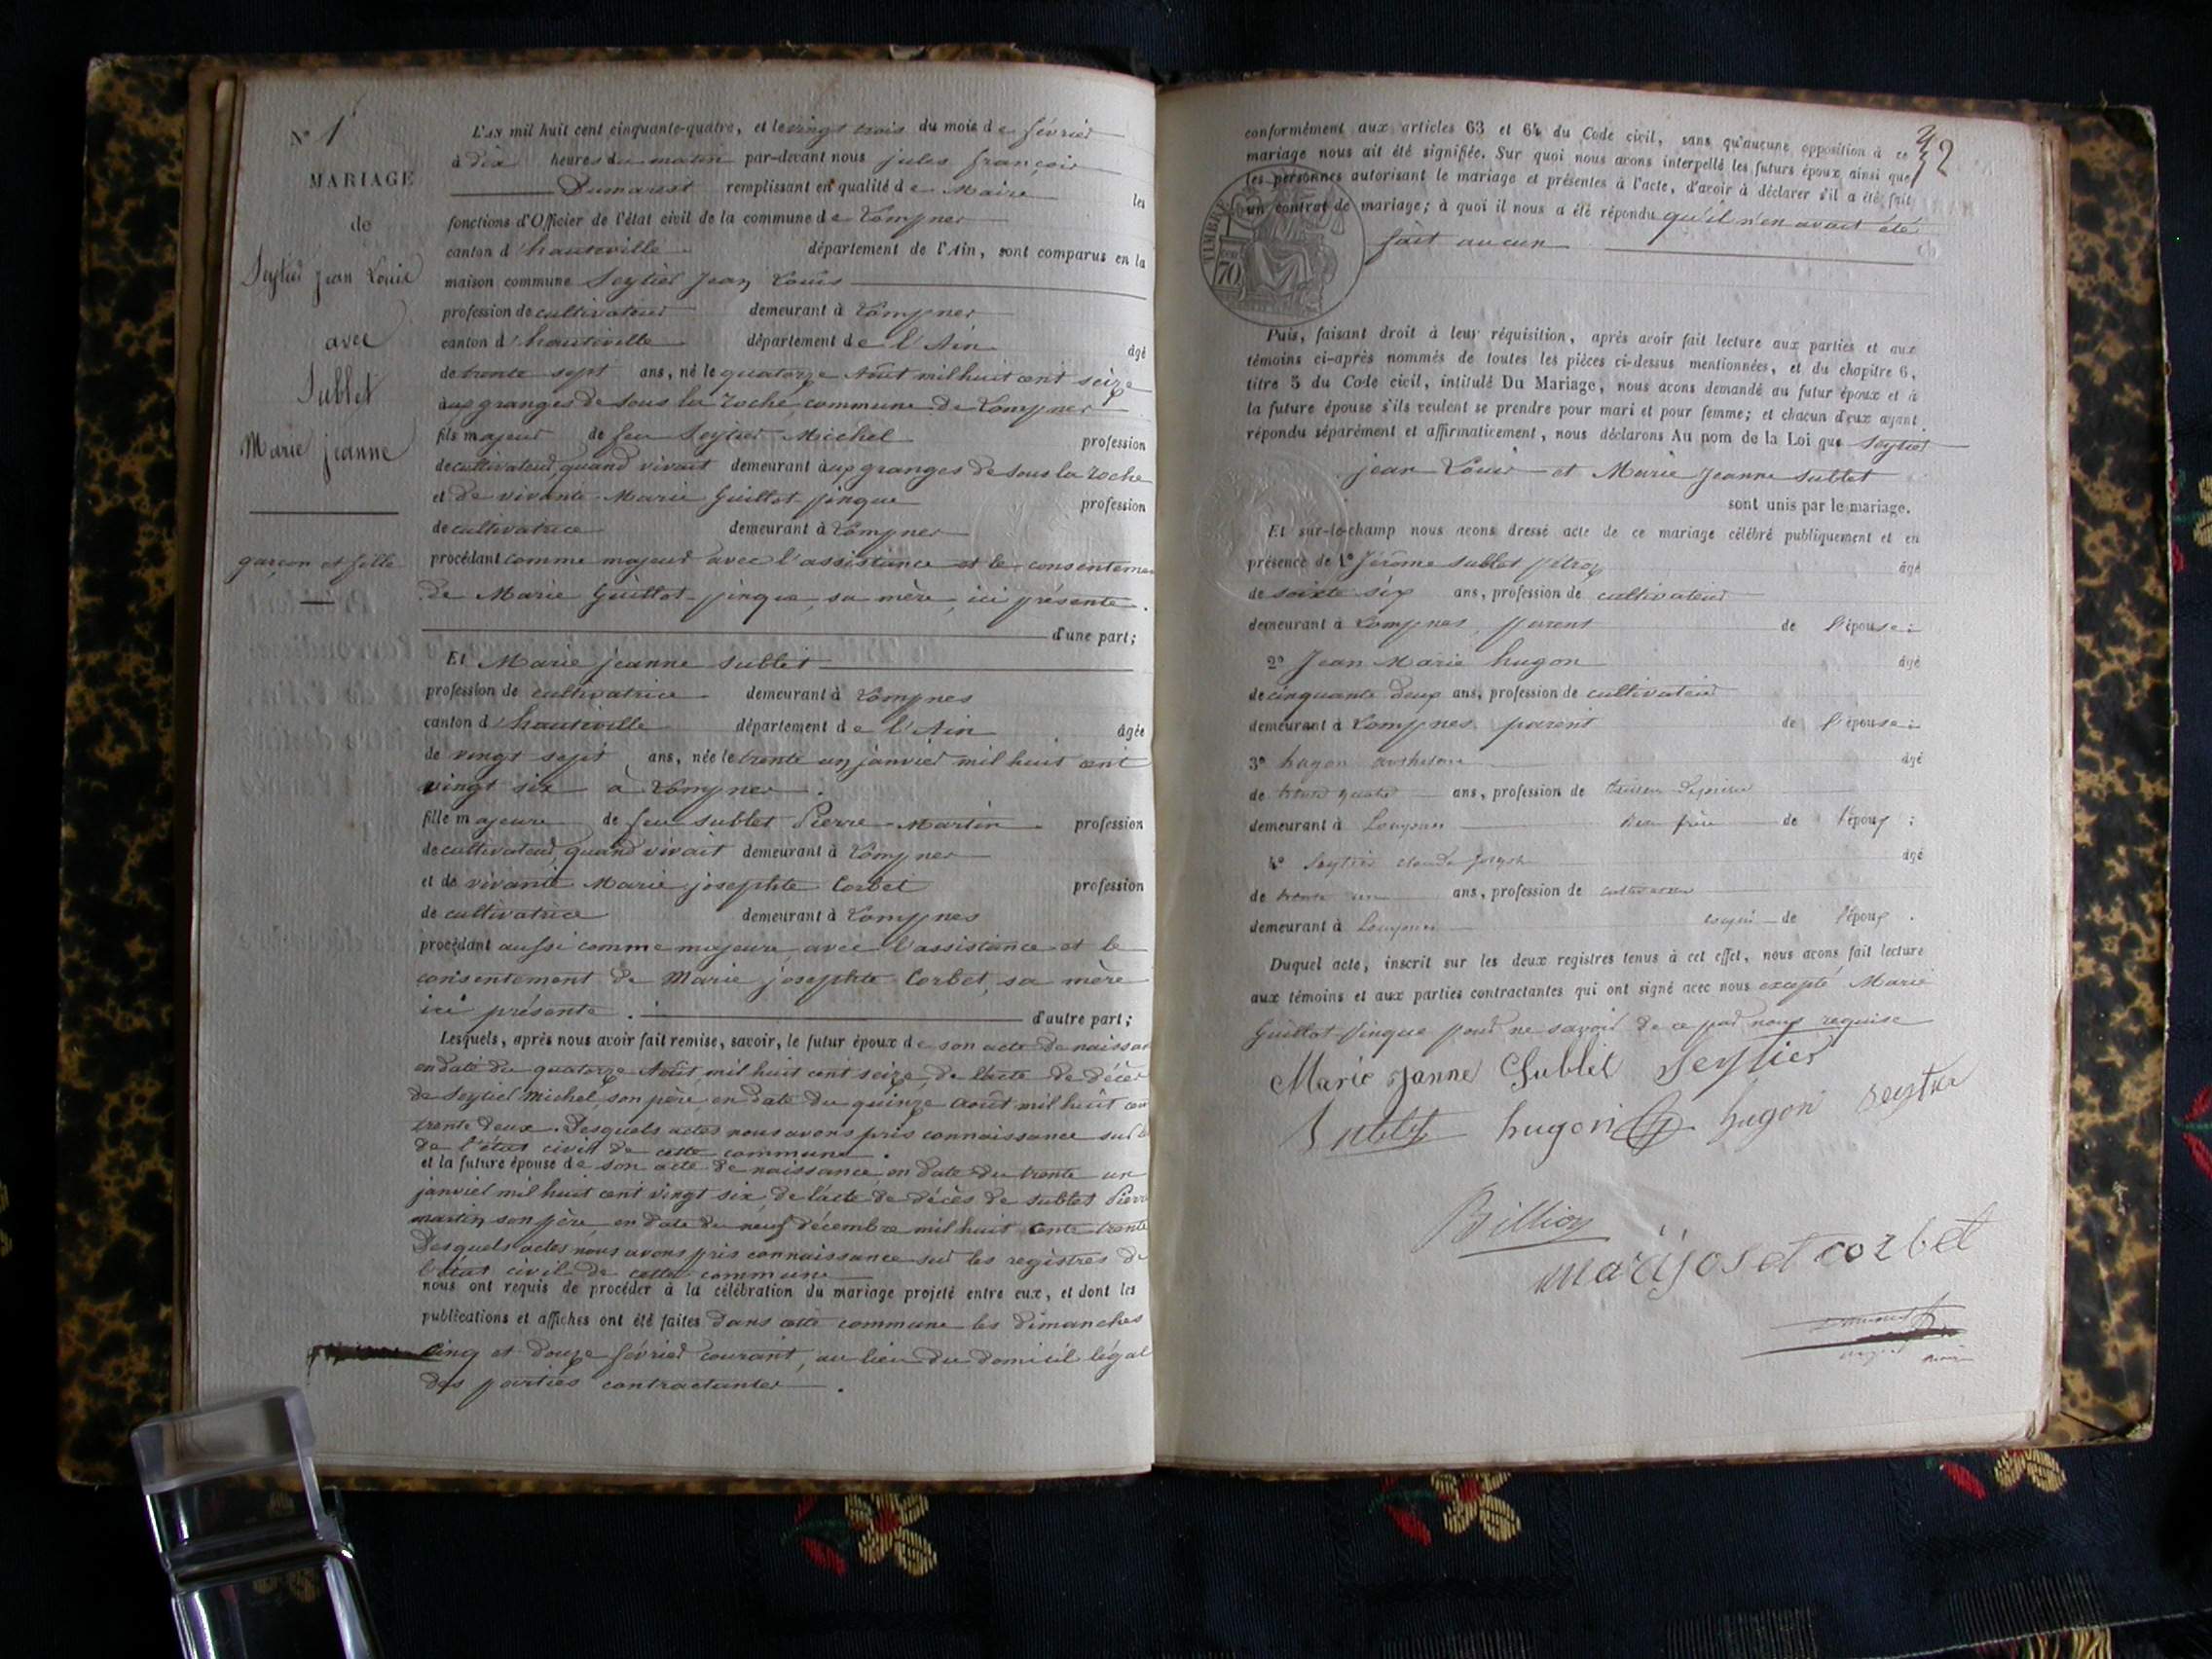 N° 1
MARIAGE
de
Seytier Jean Louis
avec
Sublet
Marie jeanne
garçon et fille
L'AN mil huit cent cinquante-quatre, et le vingt trois du mois de février
à dix heures du matin par-devant nous jules françois
Dumarest remplissant en qualité de Maire les
fonctions d'Officier de l'état civil de la commune de Lompnes
canton d'hauteville département de l'Ain, sont comparus en la
maison commune Seytier Jean Louis
profession de cultivateur demeurant à Lompnes
canton d'hauteville département de l'Ain âgé
de trente sept ans, né le quatorze Août mil huit cent seize
aux granges de sous la roche, commune de Lompnes
fils majeur de feu Seytier Michel profession
de cultivateur, quand vivait demeurant aux granges de sous la roche
et de vivante Marie Guillot-pingue profession
de cultivatrice demeurant à Lompnes
procédant comme majeur avec l'assistance et le consentemen
de Marie Guillot-pingue, sa mère, ici présente.
d'une part;
Et Marie jeanne sublet
profession de cultivatrice demeurant à Lompnes
canton d'hauteville département de l'Ain âgée
de vingt sept ans, née le trente un janvier mil huit cent
vingt six à Lompnes.
fille majeure de feu sublet Pierre-Martin profession
de cultivateur, quand vivait demeurant à Lompnes
et de vivante Marie josephte Corbet profession
de cultivatrice demeurant à Lompnes
procédant aussi comme majeure, avec l'assistance et le
consentement de Marie josephte Corbet, sa mère
ici présente. d'autre part;
Lesquels, après nous avoir fait remise, savoir, le futur époux de son acte de naissan
en date du quatorze Août mil huit cent seize, de l'acte de décès
de Seytier Michel, son père, en date du quinze Août mil huit cent
trente deux. Desquels actes nous avons pris connaissance sur
de l'état civil de cette commune.
et la future épouse de son acte de naissance, en date du trente un
janvier mil huit cent vingt six, de l'acte de décès de sublet Pierre
martin son père, en date du neuf décembre mil huit cent trente
Desquels actes nous avons pris connaissance sur les registres de
l'état civil de cette commune
nous ont requis de procéder à la célébration du mariage projeté entre eux, et dont les
publications et affiches ont été faites dans cette commune les dimanches
cinq et douze février courant, au lieu du domicile légal
des parties contractantes.
32
conformément aux articles 63 et 64 du Code civil, sans qu'aucune opposition à ce
mariage nous ait été signifiée. Sur quoi nous avons interpellé les futurs époux, ainsi que
les personnes autorisant le mariage et présentes à l'acte, d'avoir à déclarer s'il a été fait
un contrat de mariage; à quoi il nous a été répondu qu'il n'en avait été
fait aucun
TIMBRE
70
Puis, faisant droit à leur réquisition, après avoir fait lecture aux parties et aux
témoins ci-après nommés de toutes les pièces ci-dessus mentionnées, et du chapitre 6,
titre 5 du Code civil, intitulé Du Mariage, nous avons demandé au futur époux et à
la future épouse s'ils veulent se prendre pour mari et pour femme; et chacun d'eux ayant
répondu séparément et affirmativement, nous déclarons Au nom de la Loi que Seytier
jean Louis et Marie Jeanne Sublet
sont unis par le mariage.
Et sur-le-champ nous avons dressé acte de ce mariage célébré publiquement et en
présence de 1° Jérôme sublet âgé
de soixante six ans, profession de cultivateur
demeurant à Lompnes, parent de l'épouse;
2° Jean Marie hugon âgé
de cinquante deux ans, profession de cultivateur
demeurant à Lompnes, parent de l'épouse;
3° hugon âgé
de trente quatre ans, profession de
demeurant à Lompnes beau frère de l'époux;
4° Seytier claude joseph âgé
de trente un ans, profession de cultivateur
demeurant à Lompnes cousin de l'époux.
Duquel acte, inscrit sur les deux registres tenus à cet effet, nous avons fait lecture
aux témoins et aux parties contractantes qui ont signé avec nous excepté Marie
Guillot-pingue pour ne savoir de ce par nous requise
Marie Janne Sublet Seytier
Sublet hugon hugon Seytier
Billion
marijoset corbet